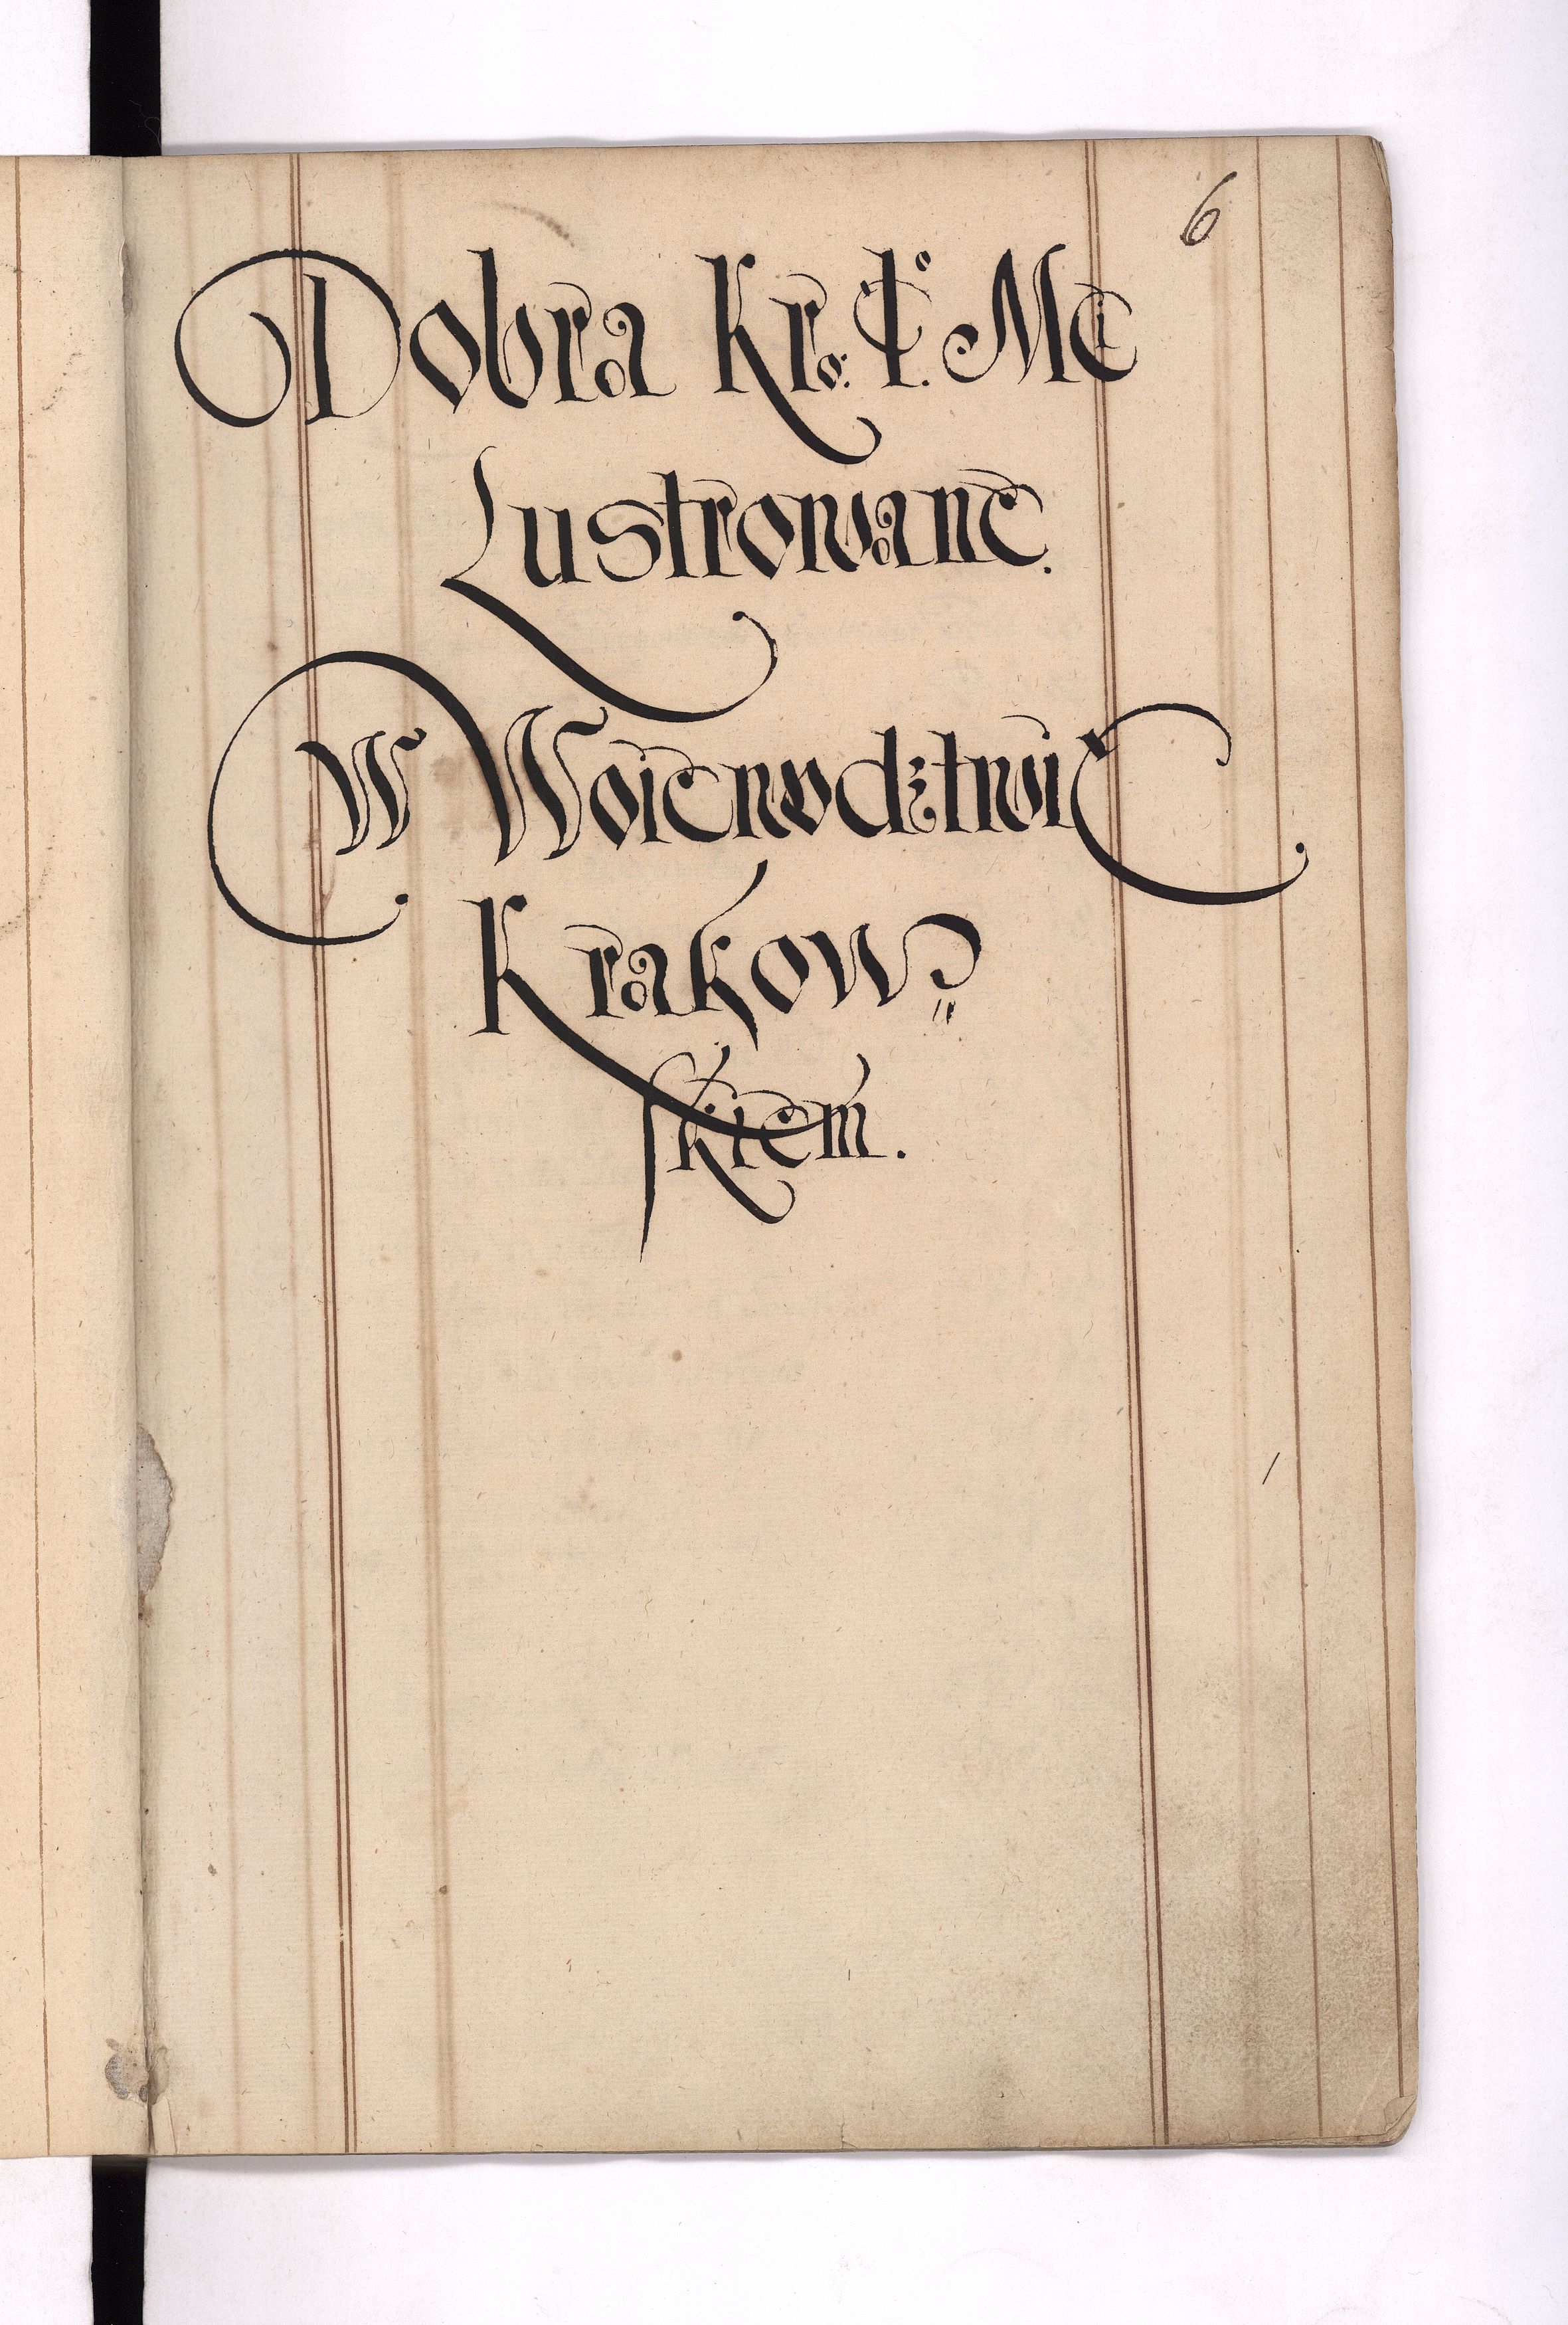 6
Dobra Kro: I.º Mci
Lustrowane.
W Woiewodztwie
Krakow=
skiem.